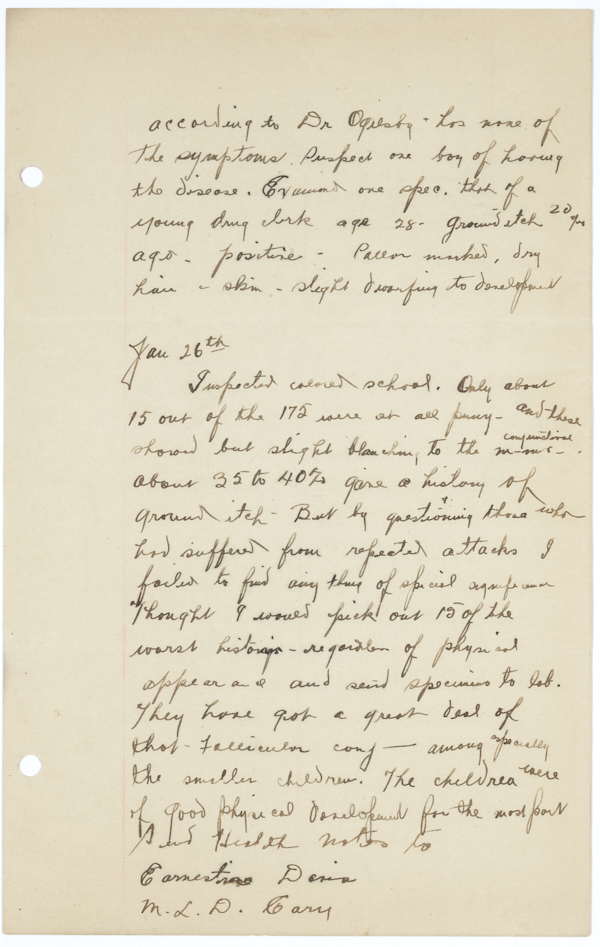 according to Dr Ogilsby - has none of
the symptoms. Suspect one boy of having
the disease. Examined one spec. that of a
young drug clerk age 28 - ground itch 20 yrs
ago - positive - Pallor marked, dry
hair - skin - slight dwarfing to development
Jan 26th
Inspected colored school. Only about
15 out of the 175 were at all puny - and these
showed but slight blanching to the conjunctival m-m-s-.
about 35 to 40% gave a history of
ground itch - But by questioning those who
had suffered from repeated attacks I
failed to find any thing of special significance
Thought I would pick out 15 of the
worst historys - regardless of physical
appearance and send specimens to lab.
They have got a great deal of
that - Follicular conj — among specially
the smaller children. The children were
of good physical development for the most part
Send Health Notes to
Earnestine Davis
M. L. D. Cary